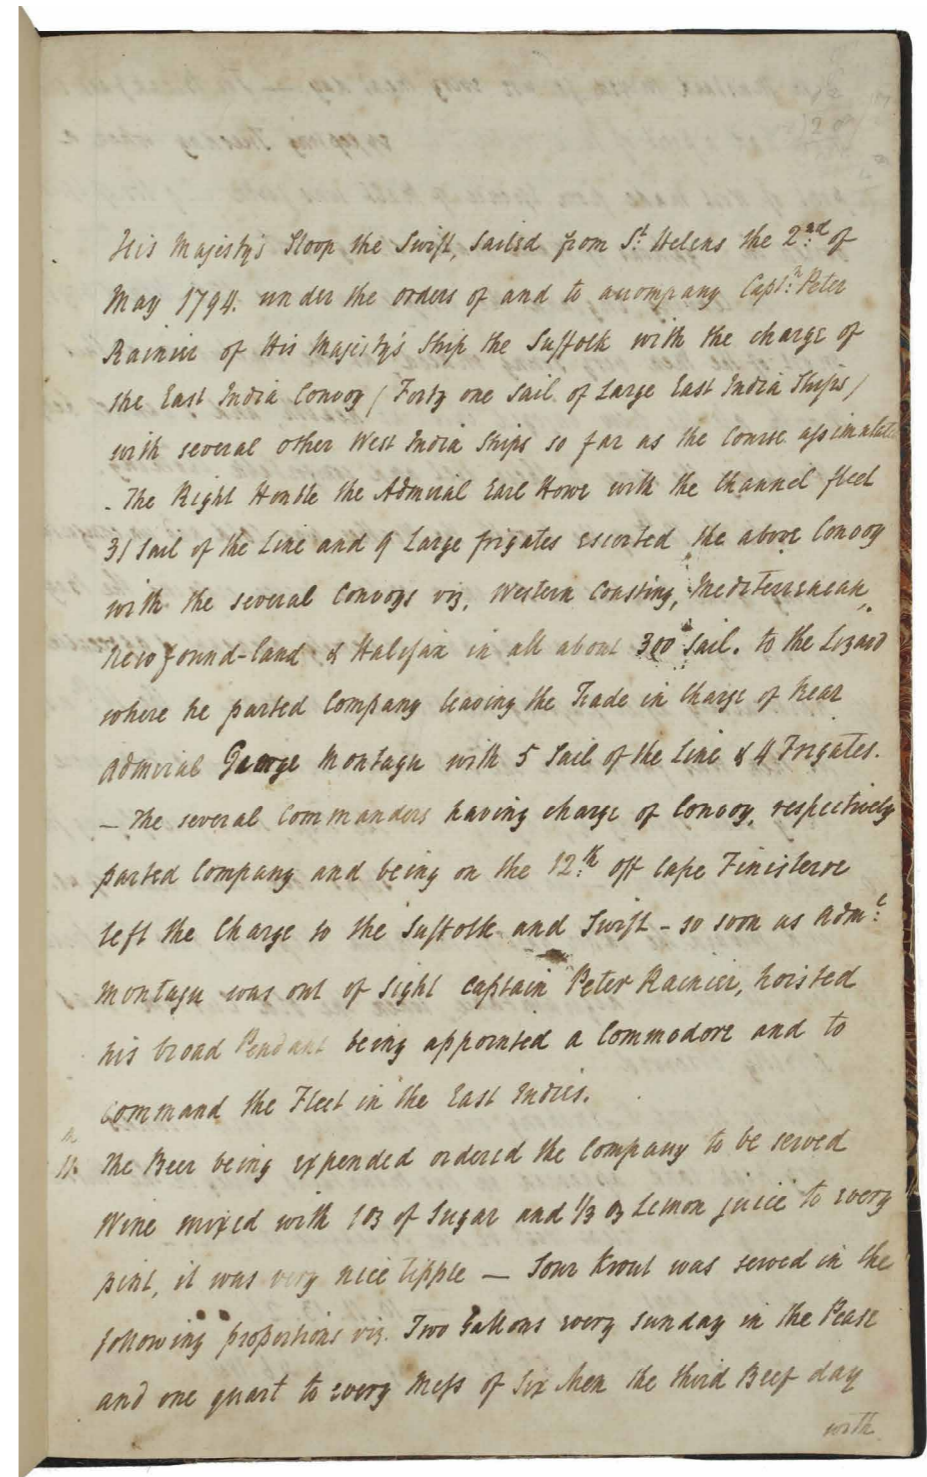 His Majesty's Sloop the Swift, sailed from St. Helens the 2nd. of
May 1794. under the orders of and to accompany Captn. Peter
Rainier of His Majesty's Ship the Suffolk with the charge of
the East India Convoy / Forty one Sail of Large East India Ships /
with several other West India Ships so far as the Course assimalate
- The Right Honble the Admiral Earl Howe with the Channel fleet
31 Sail of the Line and 9 Large frigates escorted the above Convoy
with the several Convoys viz, Western Coasting, Mediterranean,
Newfound-land & Halifax in all about 300 Sail. to the Lizard
where he parted Company leaving the Trade in Charge of Rear
Admiral George Montagu with 5 Sail of the Line & 4 Frigates.
- The several Commanders having charge of Convoy, respectively
parted Company and being on the 12th. off Cape Finisterre
left the Charge to the Suffolk and Swift - so soon as Adml.
Montagu was out of Sight Captain Peter Rainier, hoisted
his broad Pendant being appointed a Commodore and to
Command the Fleet in the East Indies.
The Beer being expended ordered the Company to be served
Wine mixed with 1 oz of Sugar and 1/3 oz Lemon juice to every
pint, it was very nice tipple — Sour Krout was served in the
following proportions viz. Two Gallons every Sunday in the Pease
and one quart to every Mess of Six Men the third Beef day
with